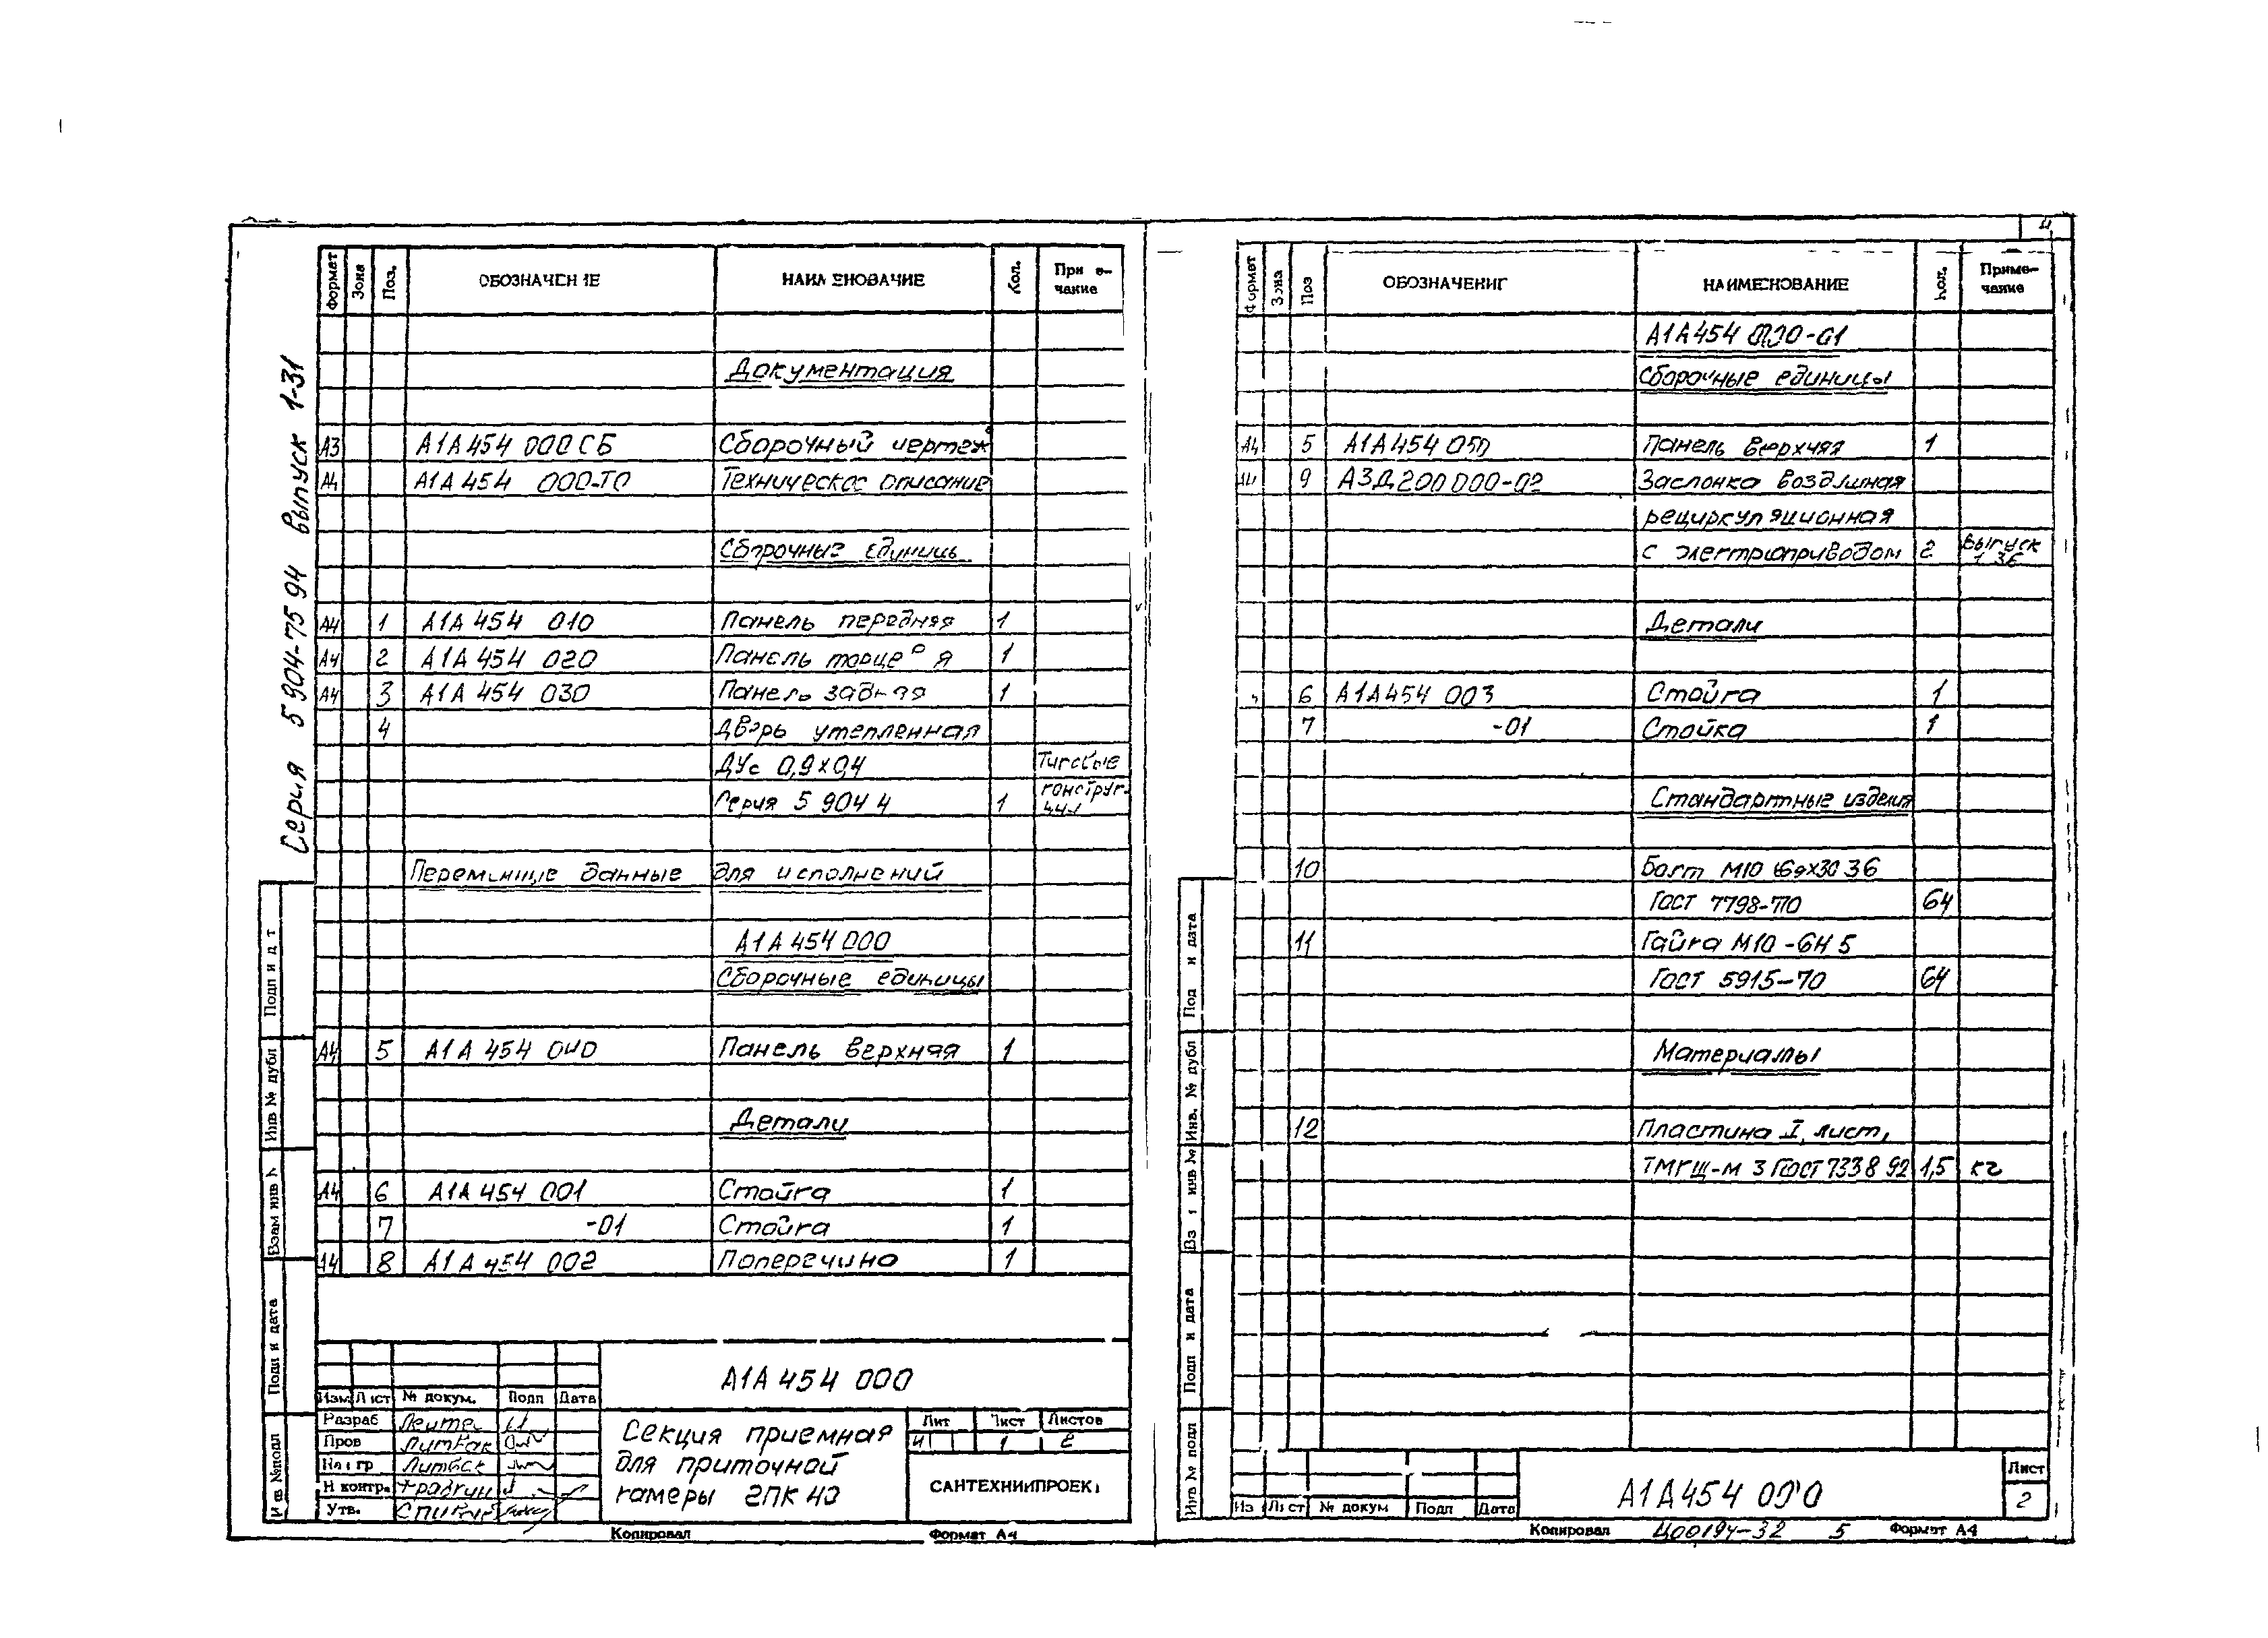 Серия 5 904-75 94 выпуск 1-31
Формат Зона Поз. ОБОЗНАЧЕН ІЕ НАИМ ЕНОВАЧИЕ Кол. При е-
чание
Документация
А3 А1А454 000СБ Сборочный чертеж
А4 А1А 454 000-ТО Техническое описание
Сборочные единицы
А4 1 А1А 454 010 Панель передняя 1
А4 2 А1А 454 020 Панель 1
А4 3 А1А 454 030 Панель задняя 1
4 Дверь утепленная
ДУс 0,9х0,4 Типовые
Серия 5 904 4 1 конструк-
ции
Переменные данные для исполнений
А1А 454 000
Сборочные единицы
А4 5 А1А 454 040 Панель верхняя 1
Детали
А4 6 А1А 454 001 Стойка 1
7 -01 Стойка 1
А4 8 А1А 454 002 Поперечина 1
А1А 454 000
Изм Лист № докум. Подп Дата
Разраб
Пров Литвак
Литвак
Н контр. Фрадкин
Утв.
Секция приемная
для приточной
камеры 2ПК 40
Лит Лист Листов
И 1 2
САНТЕХНИИПРОЕКТ
Копировал Формат А4
Подп и д т
Инв № дубл
Взам инв №
Подп и дата
Инв №подл
4
Формат Зона Поз ОБОЗНАЧЕНИЕ НАИМЕНОВАНИЕ Кол. Приме-
чание
А1А454 000-01
Сборочные единицы
А4 5 А1А454 050 Панель верхняя 1
А4 9 А3Д200 000-02 Заслонка воздушная
рециркуляционная
с электроприводом 2 Выпуск
1 36
Детали
6 А1А454 003 Стойка 1
7 -01 Стойка 1
Стандартные изделия
10 Болт М10 6gх30 36
Гост 7798-70 64
11 Гайка М10-6Н 5
Гост 5915-70 64
Материалы
12 Пластина I, лист,
ТМКЩ-М 3 Гост 7338 92 1,5 кг
Под и дата
Инв. № дубл
Вз инв №
Подп и дата
Инв № подл
Из Лист № докум Подп Дата
А1А454 000
Лист
2
Копировал Ц00194-32 5 Формат А4